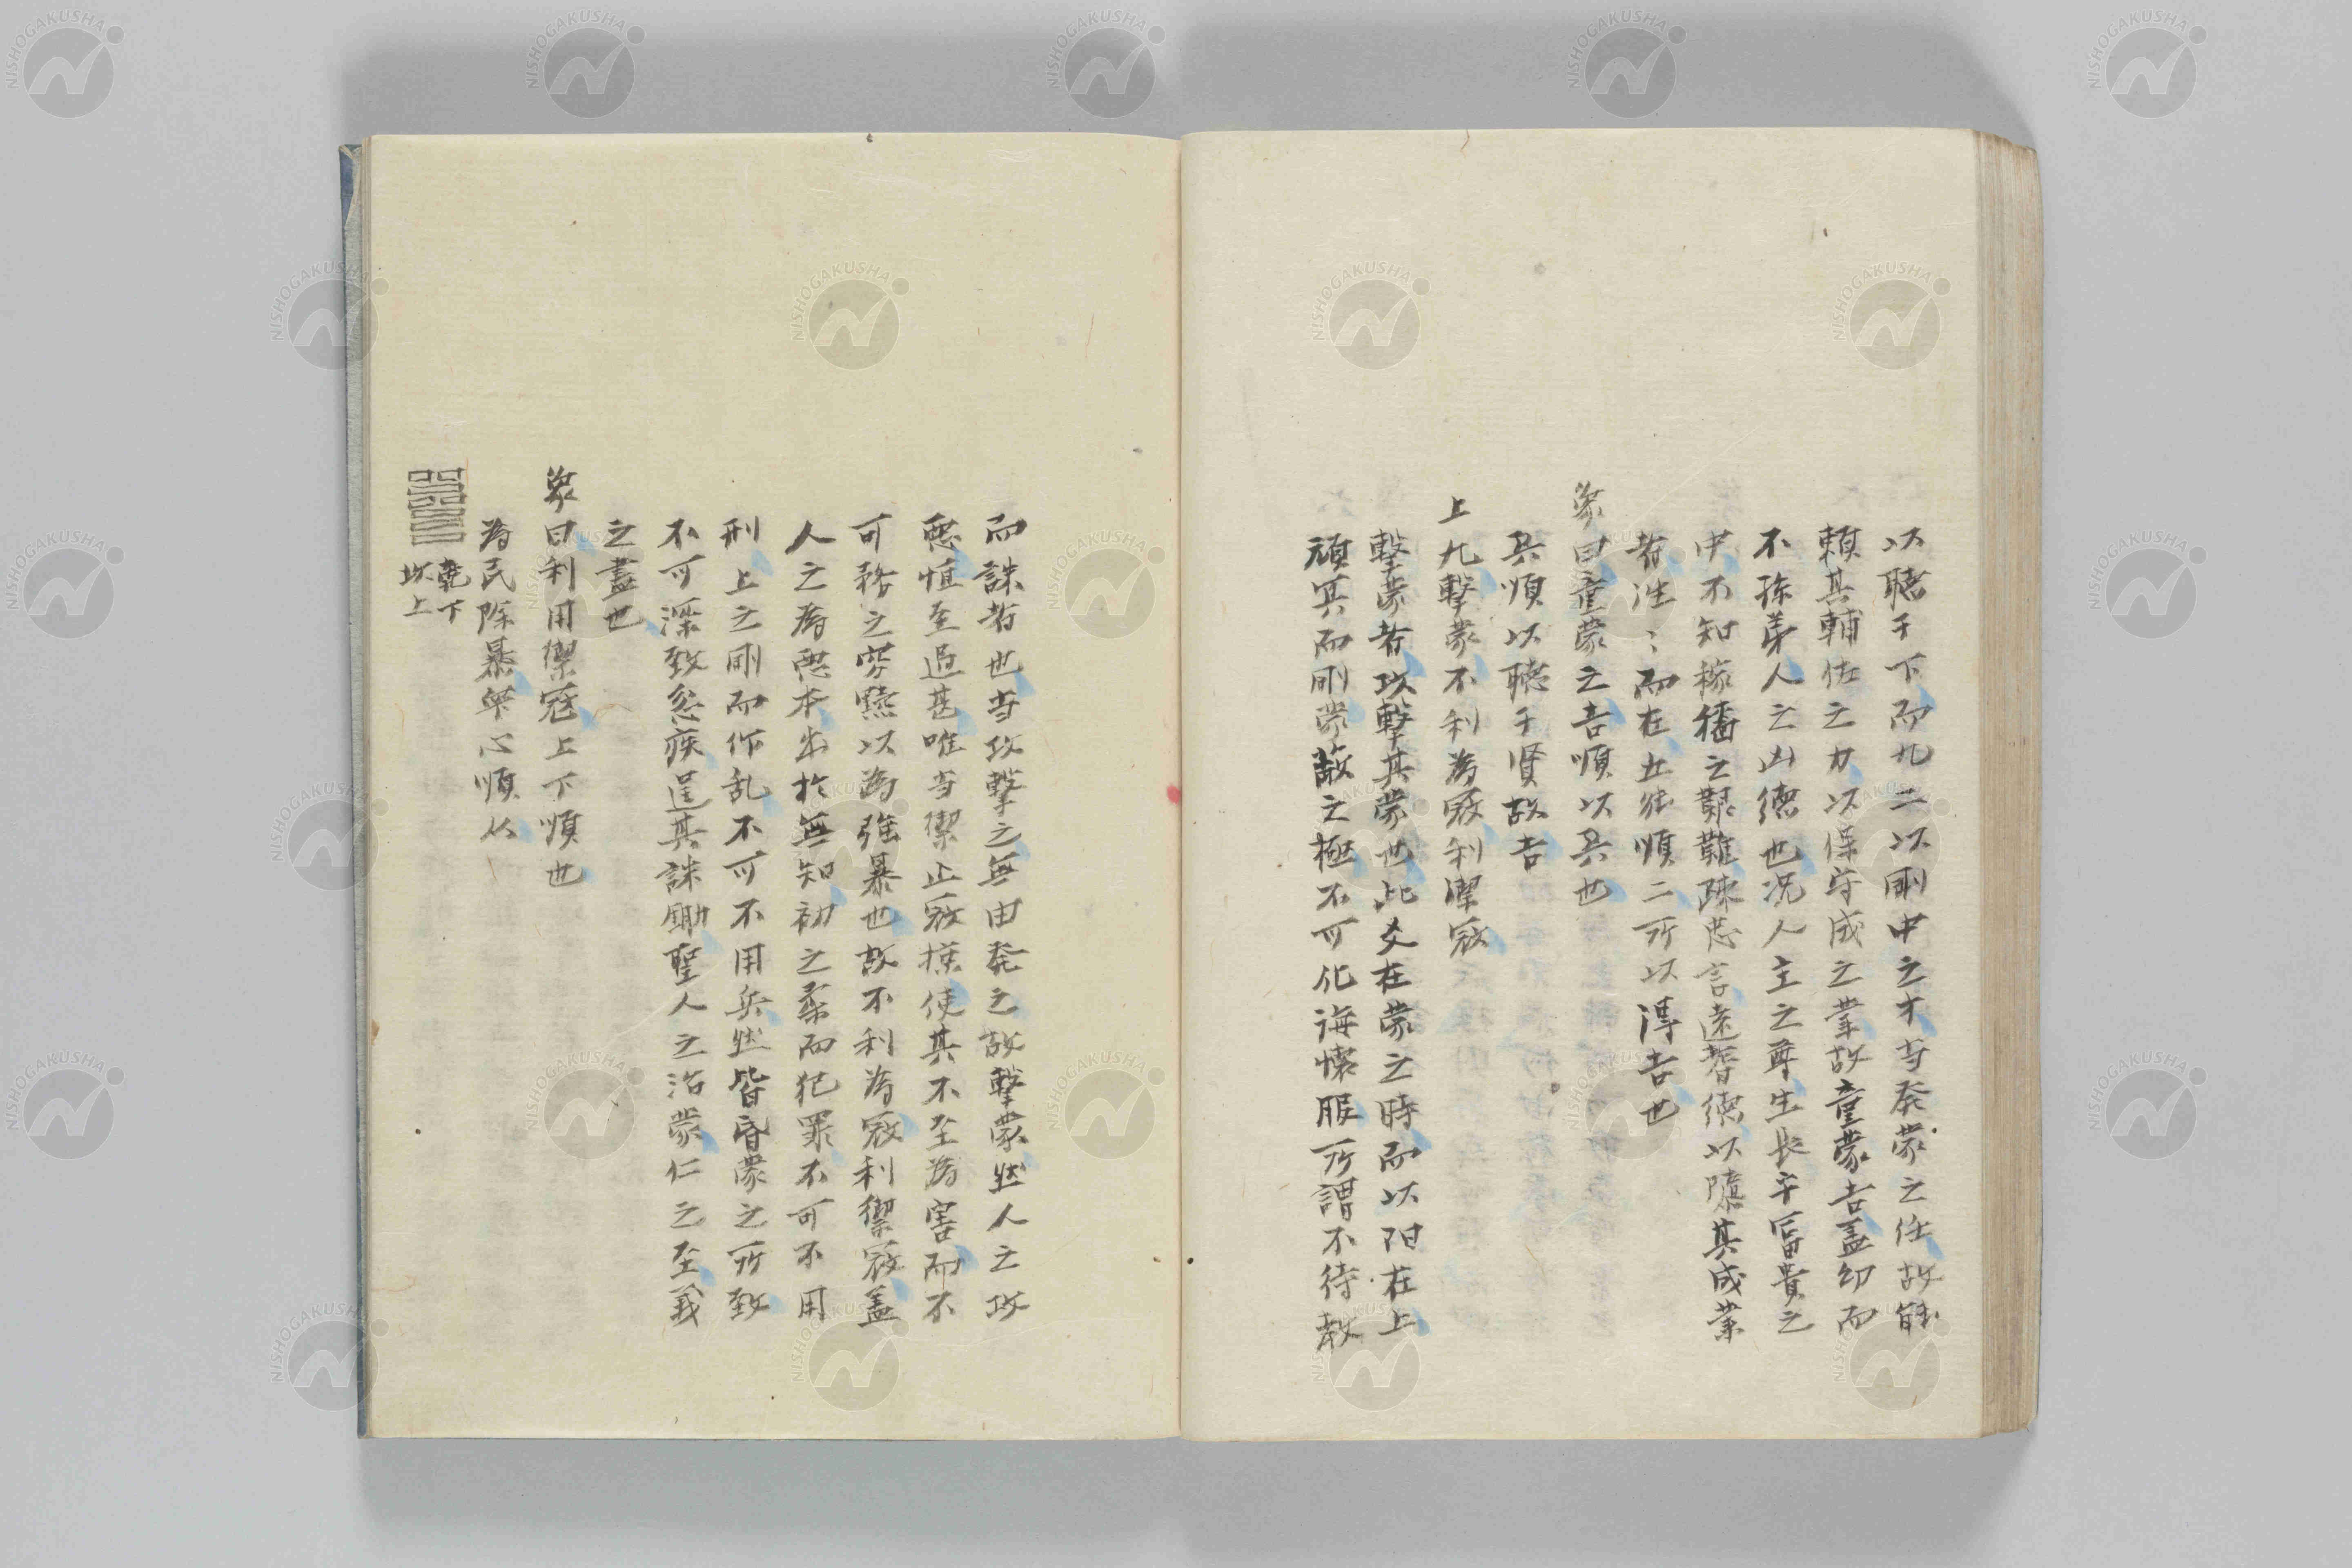 以聴于下而九二以剛中之才當発蒙之任故能
頼其輔佐之力以保守成之業故童蒙吉蓋幼而
不孫弟人之凶德也况人主之尊生長于富貴之
中不知稼穡之艱難疎忠言遠耆德以隳其成業
者往〻而在五能順二所以得吉也
象曰童蒙之吉順以巽也
巽順以聴于賢故吉
上九擊蒙不利為寇利禦寇
擊蒙者攻擊其蒙也此爻在蒙之時而以阳在上
頑冥而剛蒙蔽之極不可化誨懷服所謂不待教
而誅者也當攻擊之無由発之故擊蒙然人之攻
惡恒至過甚唯當禦止寇攘使其不至為害而不
可務之窮黷以為強暴也故不利為寇利禦寇蓋
人之為惡本出於無知初之柔而犯罪不可不用
刑上之剛而作乱不可不用兵然皆昏蒙之所致
不可深致忿疾逞其誅鋤聖人之治蒙仁之至義
之盡也
象曰利用禦寇上下順也
為民除暴衆心順从
乾下
坎上
NISHOGAKUSHA